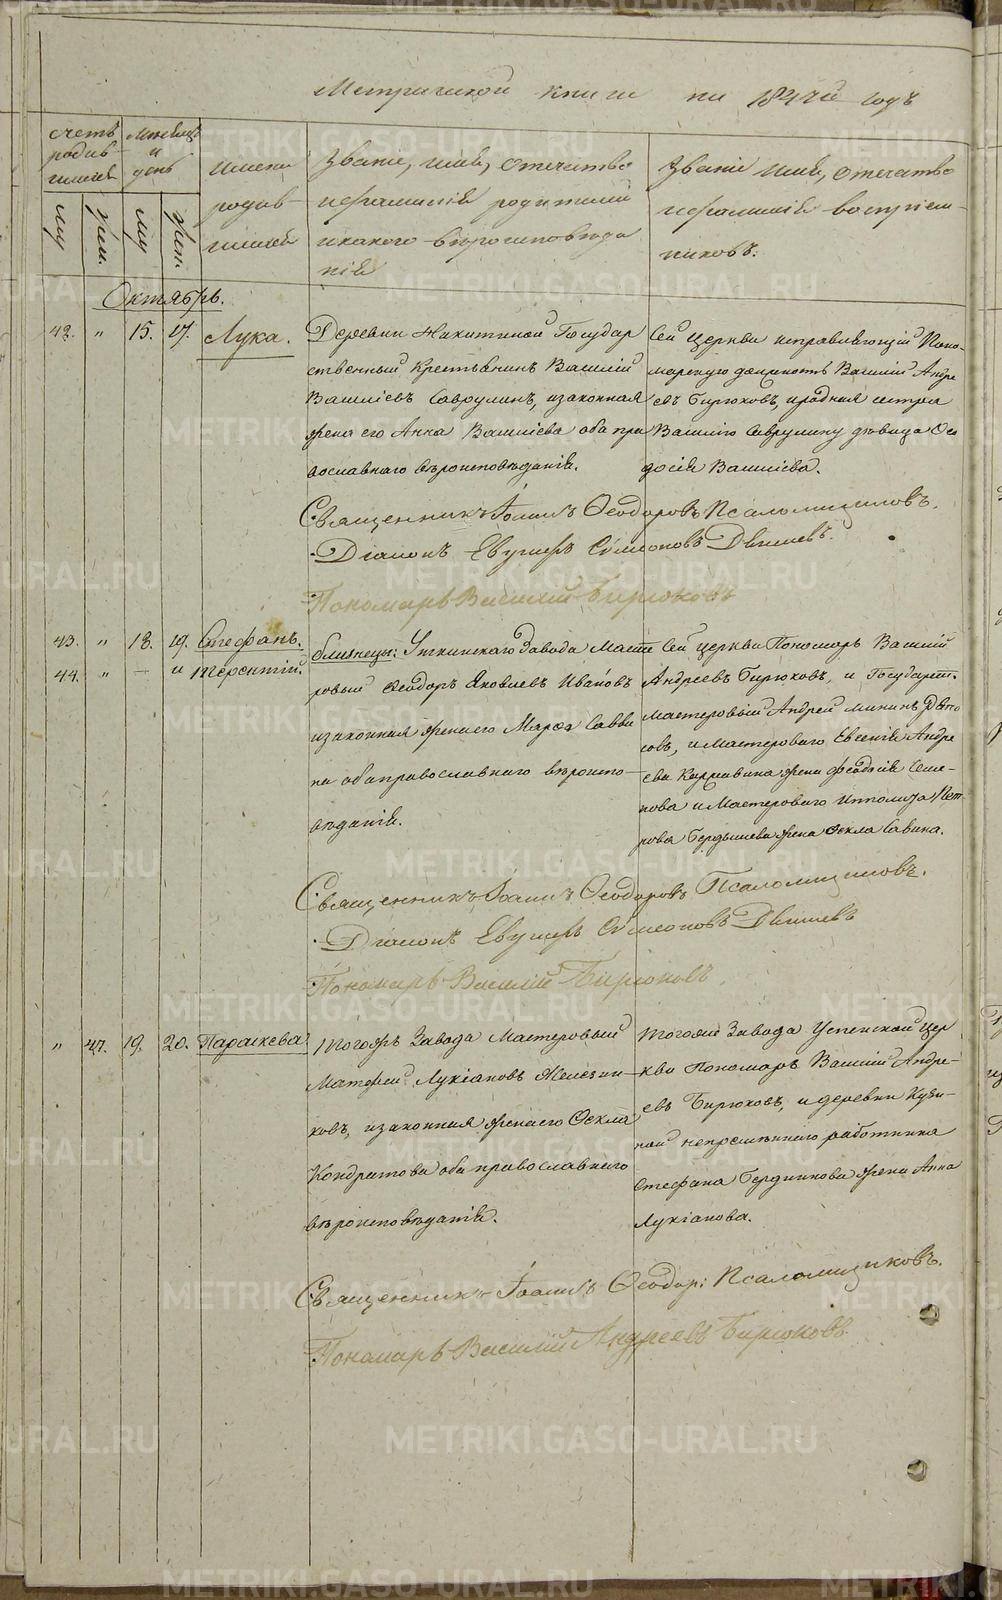 Метрической книги на 184 годъ
Счетъ родив-шихся
Мѣсяцъ и день
Имена родив-шихся
Званіе, имя, отечество
и фамилія родителей
и какого вѣроисповѣда
нія
Званіе имя, отечество
и фамилія воспріем-
никовъ.
му жен. му жен.
Октябрь.
42. " 15. 17. Лука.
Деревни Никитиной Государ
ственный Крестьянинъ Василій
Василіевъ Саврулинъ, и законная
жена его Анна Василіева оба пра
вославнаго вѣроисповѣданія.
Сей Церкви исправляющій Поно-
марскую должность Василій Андре
евъ Бирюковъ, и родная сестра
Василію Саврулину дѣвица Ѳео
досія Василіева.
Священникъ Іоаннъ Ѳеодоровъ Псаломщиковъ.
Діаконъ Евгенъ Сѵмеоновъ
Пономарь Василий Бирюковъ
43. " 18. 19. Стефанъ.
44. " — и Терентій.
близнецы: Уткинскаго Завода Масте
ровый Ѳеодоръ Яковлевъ Ивановъ
и законная жена его Марѳа Савви
на оба православнаго вѣроиспо-
вѣданія.
Сей церкви Пономарь Василій
Андреевъ Бирюковъ, и Государст.
мастеровый Андрей Мининъ
совъ, и мастероваго Евгенія Андре
ева жена Ѳеодосія Семе-
нова и Мастероваго Ипполита Пет
рова Бердышева жена Ѳекла Савина.
Священникъ Іоаннъ Ѳеодоровъ Псаломщиковъ.
Діаконъ Сѵмеоновъ
Пономарь Василій Бирюковъ
" 47. 19. 20. Параскева
Тогожъ Завода Мастеровый
Матфей Лукіановъ Железни-
ковъ, и законная жена его Ѳекла
Кондратова оба православнаго
вѣроисповѣданія.
Тогоже Завода Успенской цер
кви Пономарь Василій Андре-
евъ Бирюковъ, и деревни Кузи-
ной непремѣннаго работника
Стефана Бердникова жена Анна
Лукіанова.
Священникъ Іоаннъ Ѳеодор: Псаломщиковъ.
Пономарь Василий Андреевъ Бирюковъ
METRIKI.GASO-URAL.RU